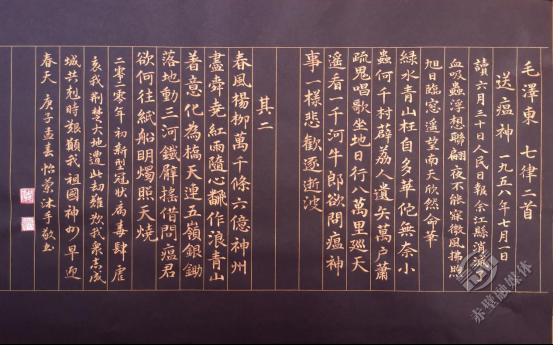 毛澤東 七律二首
送瘟神 一九五八年七月一日
讀六月三十日人民日報余江縣消滅了
血吸蟲浮想聯翩夜不能寐微風拂煦
旭日臨窓遥望南天欣然命筆
緑水青山枉自多華佗無奈小
蟲何千村薜荔人遺矢萬户蕭
疏鬼唱歌坐地日行八萬里巡天
遥看一千河牛郎欲問瘟神
事一樣悲歡逐逝波
其二
春風楊柳萬千條六億神州
盡舜堯紅雨隨心飜作浪青山
着意化為橋天連五嶺銀鋤
落地動三河鐵臂摇借問瘟君
欲何往紙船明燭照天燒
二零二零年初新型冠狀病毒肆虐
哀我荆楚大地遭此劫難欣我衆志成
城共尅時艱願我祖國神州早迎
春天 庚子孟春怡沐手敬書
赤壁融媒体